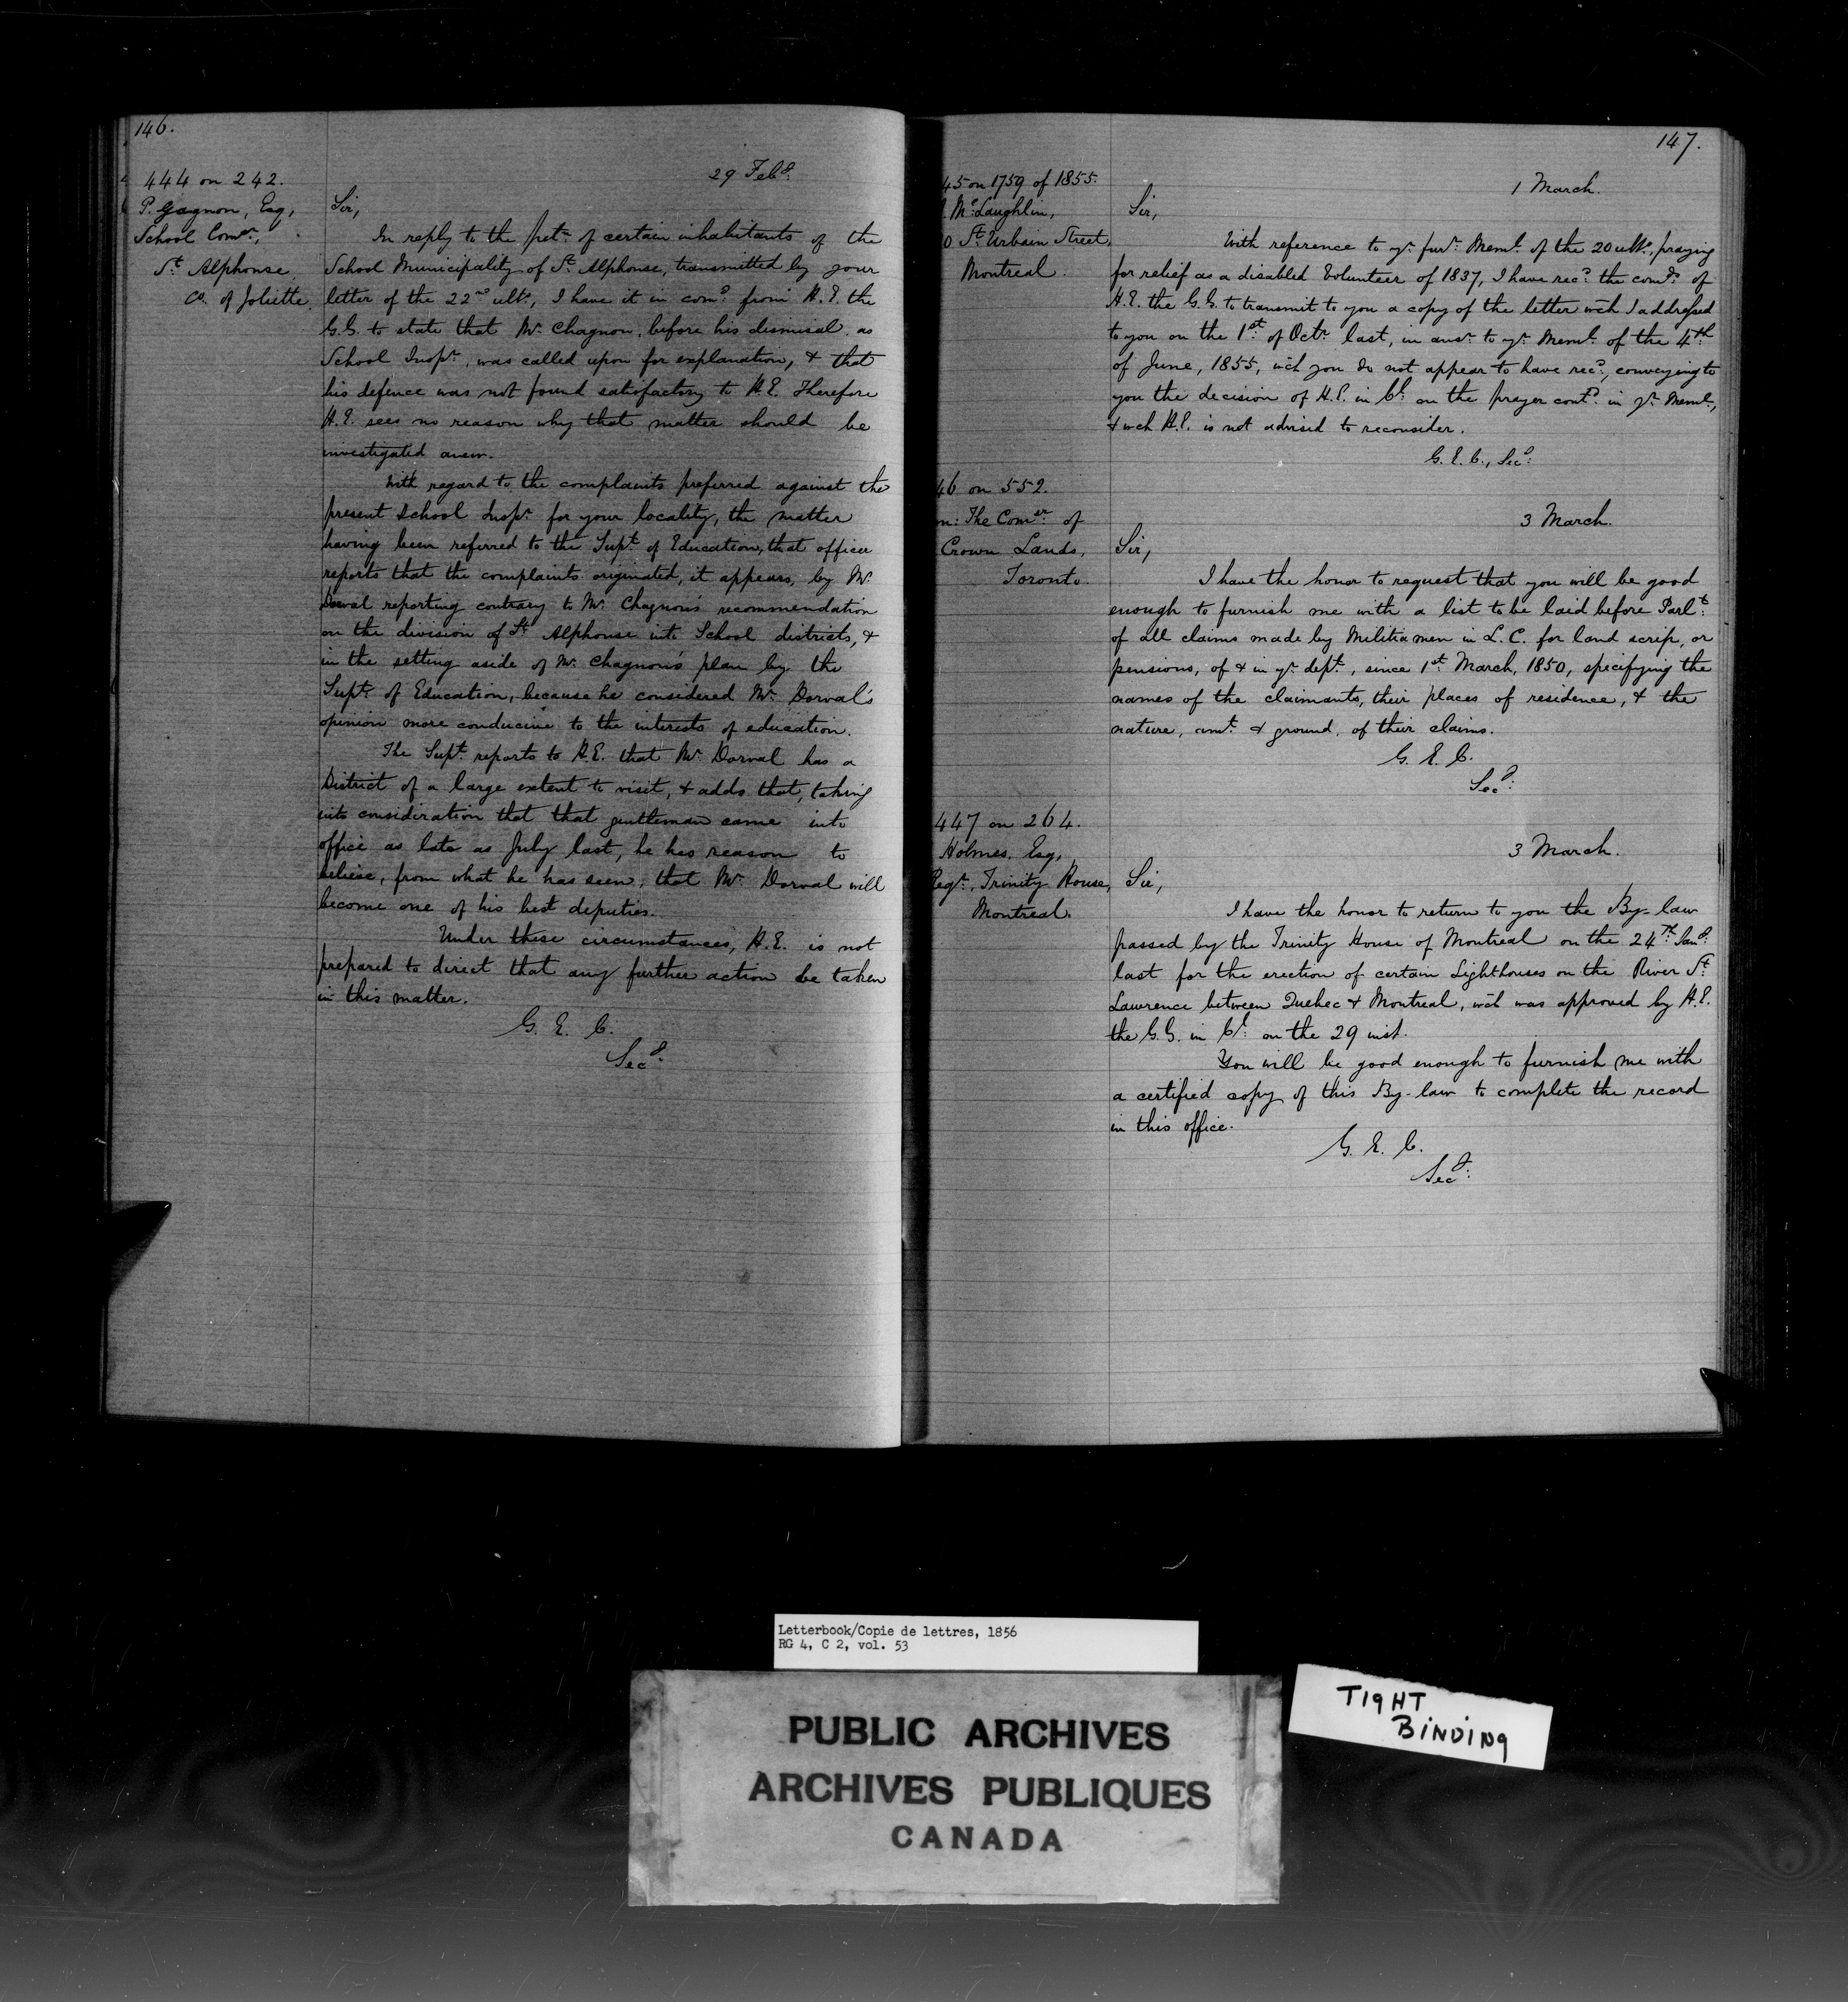 146.
444 on 242.
P. Gagnon, Esq,
School Comer,
St. Alphonse
Co. of Joliette
29 Feby.
Sir,
In reply to the petn. of certain inhabitants of the
School Municipality of St. Alphonse, transmitted by your
letter of the 22nd ulto., I have it in comd. from H.E. the
G.G. to state that Mr. Chagnon, before his dismisal as
School Inspr. was called upon for explanation, & that
his defence was not found satisfactory to H.E. Therefore
H.E. sees no reason why that matter should be
investigated anew.
With regard to the complaints preferred against the
present School Inspr. for your locality, the matter
having been referred to the Supt. of Education, that officer
reports that the complaints originated, it appears, by Mr.
Dorval reporting contrary to Mr. Chagnon's recommendation
on the division of St. Alphonse into School districts, &
in the setting aside of Mr. Chagnon's plan by the
Supt. of Education, because he considered Mr. Dorval's
opinion more conducive to the interests of education.
The Supt. reports to H.E. that Mr. Dorval has a
District of a large extent to visit, & adds that, taking
into consideration that that gentleman came into
office as late as July last, he has reason to
believe, from what he has seen, that Mr. Dorval will
become one of his best deputies.
Under these circumstances, H.E. is not
prepared to direct that any further action be taken
in this matter.
G. E. C.
Secy.
147.
45 on 1759 of 1855.
McLaughlin,
0 St. Urbain Street,
Montreal.
1 March.
Sir,
With reference to yr. furr. Meml. of the 20 ulto., praying
for relief as a disabled Volunteer of 1837, I have recd. the comds. of
H.E. the G.G. to transmit to you a copy of the letter wch I addressed
to you on the 1st. of Octr. last, in ansr. to yr. Meml. of the 4th.
of June, 1855, wch you do not appear to have recd., conveying to
you the decision of H.E. in Cl. on the prayer contd. in yr. Meml.,
& wch H.E. is not advised to reconsider.
G. E. C., Secy.
46 on 552.
on: The Comer. of
Crown Lands,
Toronto.
3 March.
Sir,
I have the honor to request that you will be good
enough to furnish me with a list to be laid before Parlt.
of all claims made by Militiamen in L.C. for land scrip, or
pensions, of & in yr. dept., since 1st. March, 1850, specifying the
names of the claimants, their places of residence, & the
nature, amt. & ground, of their claims.
G. E. C.
Secy.
447 on 264.
Holmes, Esq,
Regr. Trinity House,
Montreal.
3 March.
Sir,
I have the honor to return to you the By-law
passed by the Trinity House of Montreal on the 24th. Jany.
last for the erection of certain Lighthouses on the River St.
Lawrence between Quebec & Montreal, wch was approved by H.E.
the G.G. in Cl. on the 29 inst.
You will be good enough to furnish me with
a certified copy of this By-law to complete the record
in this office.
G. E. C.
Secy.
Letterbook/Copie de lettres, 1856
RG 4, C 2, vol. 53
PUBLIC ARCHIVES
ARCHIVES PUBLIQUES
CANADA
TIGHT
BINDING